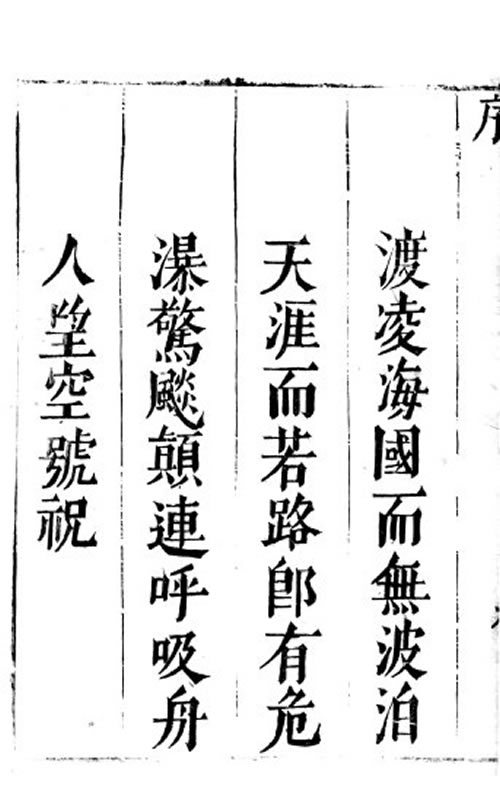 序
渡凌海國而無波泊
天涯而若路卽有危
瀑驚飈顛連呼吸舟
人望空號祝